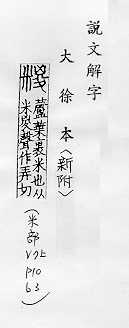 說文解字
大徐本〈新附〉
糉 蘆葉裹米也从
米㚇聲作弄切
(米部 V7上 P10 b3)